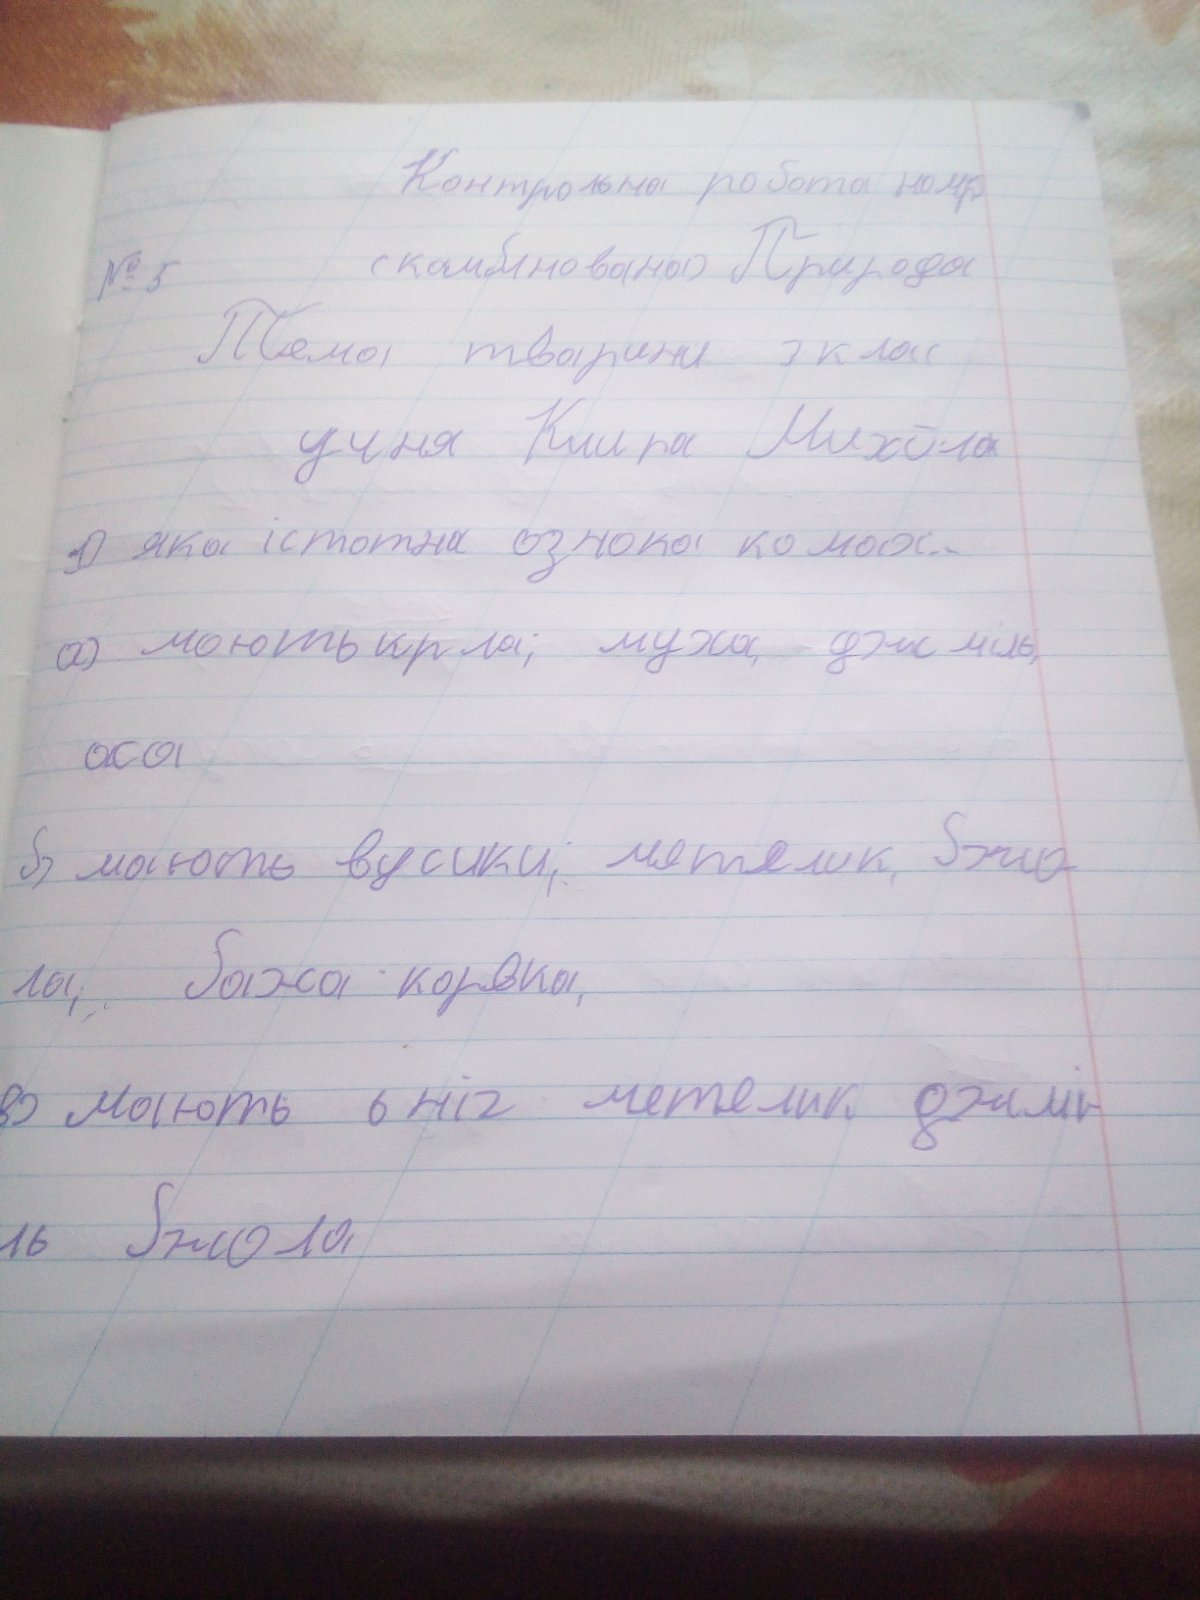 Контрольна робота номр
№ 5 (камбінована) Природа
Тема тварини 3 клас
учня Кшира Михола
1) яка істотна ознока комах..
а) мають крла; муха, джміль,
оса
б) мають вусики; метелик, бжо
ла, бажа-корвка,
в) мають 6 ніг метелик джмі
ль бжола